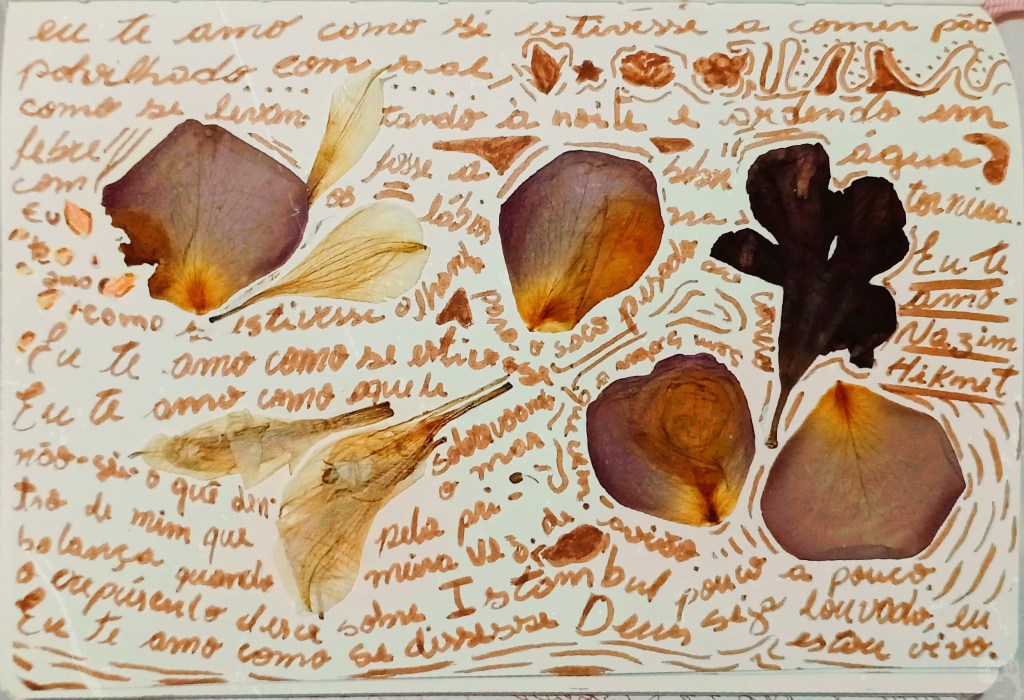 eu te amo como se estivesse a comer pão
polvilhado com sal e
como se levan- tando à noite e ardendo em
febre!!! fosse a beber água
com os lábios na torneira.
Eu
te
amo
como se estivesse olhando
para o saco pesado
do correio
Eu te amo como se estivesse
sobrevoando
o mar
pela pri-
meira vez de avião
Eu te amo como aquele
não-sei-o quê den-
tro de mim que
balança quando
o crepúsculo desce sobre Istambul pouco a pouco
Eu te amo como se dissesse Deus seja louvado, eu
estou vivo.
Eu te
amo-
Nazim
Hikmet